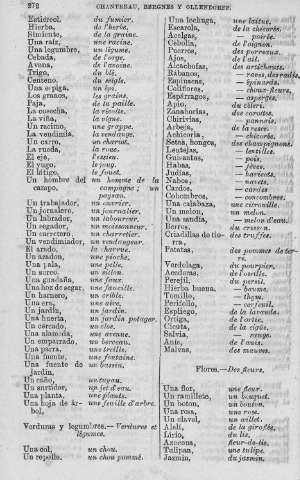 272 CHANTREAU, BERGNES Y OLLENDORFF.
Estiércol, du fumier.
Hierba, de l'herbe.
Simiente, de la graine.
Una raiz, une racine.
Una legumbre, un légume.
Cebada, de l'orge.
Avena, de l'avoine.
Trigo, du blé.
Centeno, du seigle.
Una espiga, un épi.
Los granos, les grains.
Paja, de la paille.
La cosecha, la récolte.
La viña, la vigne.
Un racimo, une grappe.
La vendimia, la vendange.
Un carro, un chariot.
La rueda, la roue.
El eje, l'essieu.
El yugo, le joug.
El látigo, le fouet.
Un hombre del campo, un homme de la campagne; un paysan.
Un trabajador, un ouvrier.
Un jornalero, un journalier.
Un labrador, un laboureur.
Un segador, un moissonneur.
Un carretero, un charretier.
Un vendimiador, un vendangeur.
El arado, la charrue.
Un azadon, une pioche.
Una pala, une pelle.
Un surco, un sillon.
Una guadaña, une faux.
Una hoz de segar, une faucille.
Un harnero, un crible.
Una era, une aire.
Un jardin, un jardin.
Una huerta, un jardin potager.
Un cercado, un clos.
Una alameda, une avenue.
Un emparrado, un berceau.
Una parra, une treille.
Una fuente, une fontaine.
Una fuente de jardin, un bassin.
Un caño, un tuyau.
Un surtidor, un jet d'eau.
Una planta, une plante.
Una hoja de árbol, une feuille d'arbre.
Verduras y legumbres.—Verdures et légumes.
Una col, un chou.
Un repollo, un chou pommé.
Una lechuga, une laitue.
Escarola, de la chicorée.
Acelgas, — poirée.
Cebolla, de l'ognon.
Puerros, des poireaux.
Ajos, de l'ail.
Alcachofas, des artichauts.
Rábanos, — raves, des radis.
Espinacas, — épinards.
Coliflores, — choux-fleurs.
Espárragos, — asperges.
Apio, du céleri.
Zanahorias, des carottes.
Chirivias, — pannais.
Arbeja, de la vesce.
Achicoria, — chicorée.
Setas, hongos, des champignons.
Lentejas, — lentilles.
Guisantes, — pois.
Habas, — fèves.
Judías, — haricots.
Nabos, — navets.
Cardos, — cardes.
Cohombros, — concombres.
Una calabaza, une citrouille.
Un melon, un melon.
Una sandia, un melon d'eau.
Berros, du cresson.
Criadillas de tierra, des truffes.
Patatas, des pommes de terre.
Verdolaga, du pourpier.
Acederas, de l'oseille.
Perejil, du persil.
Hierba buena, — baume.
Tomillo, — thym.
Perifollo, — cerfeuil.
Espliego, de la lavande.
Ortiga, de l'ortie.
Cicuta, de la ciguë.
Salvia, — sauge.
Anis, de l'anis.
Malvas, des mauves.
Flores.—Des fleurs.
Una flor, une fleur.
Un ramillete, un bouquet.
Un boton, un bouton.
Una rosa, une rose.
Un clavel, un œillet.
Alelí, de la giroflée.
Lirio, du lis.
Azucena, fleur-de-lis.
Tulipan, une tulipe.
Jazmin, du jasmin.